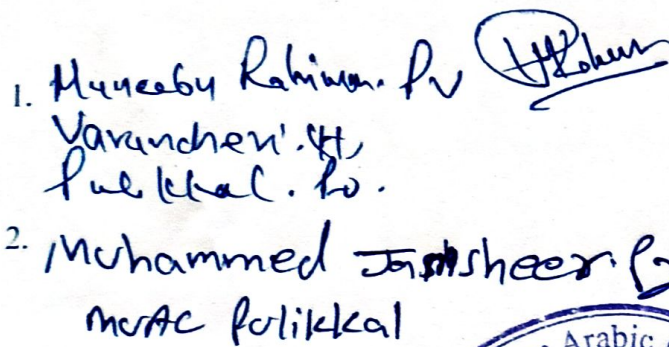 1. Muneebu Rahiman. PV
Varancheri. (H),
Pulikkal. Po.
2. Mohammed Jamsheer. P
MUAC Pulikkal
Arabic